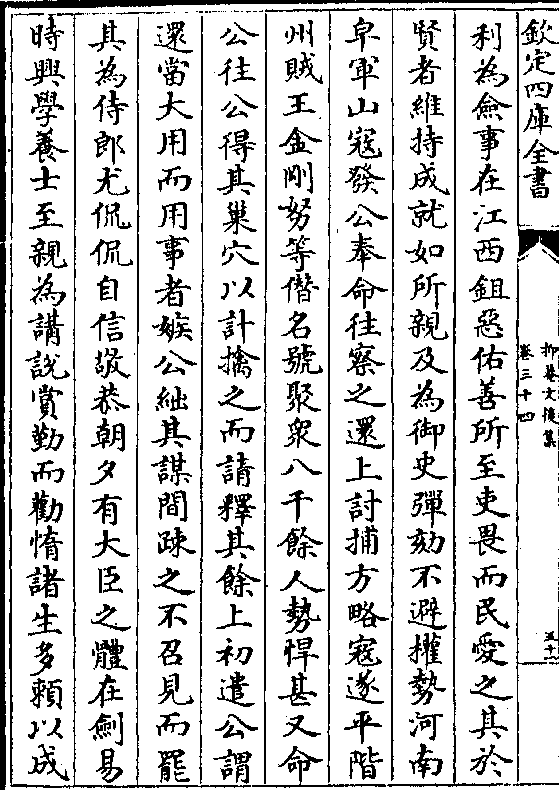 欽定四庫全書
抑菴文後集
卷三十四
利為僉事在江西鉏惡佑善所至吏畏而民愛之其於
賢者維持成就如所親及為御史彈劾不避權勢河南
皁軍山冦發公奉命往察之還上討捕方略冦遂平階
州賊王金剛努等僭名號聚衆八千餘人勢悍甚又命
公往公得其巢穴以計擒之而請釋其餘上初遣公謂
還當大用而用事者嫉公絀其謀間疎之不召見而罷
其為侍郎尤侃侃自信敬恭朝夕有大臣之體在劍易
時興學養士至親為講說賞勤而勸惰諸生多頼以成